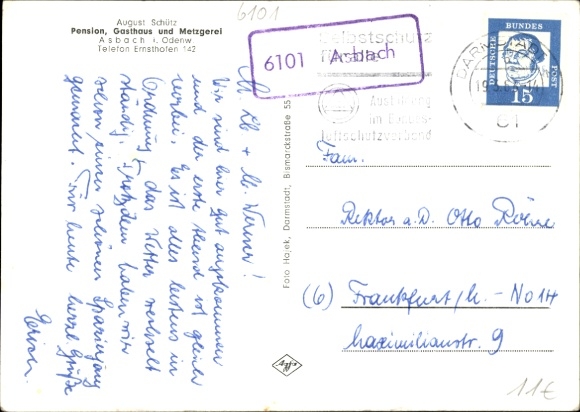 August Schütz
Pension, Gasthaus und Metzgerei
Asbach i. Odenw.
Telefon Ernsthofen 142
6101
6101 Asbach
Selbstschutz
Ausbildung
im Bundes-
luftschutzverband
DARMSTADT
61
DEUTSCHE BUNDESPOST
15
M. Lb + M. Werner!
Wir sind hier gut angekommen
und der erste Abend ist gleich
vorbei. Es ist alles bestens in
Ordnung, das Wetter wechselt
ständig. Trotzdem haben wir
schon einen schönen Spaziergang
gemacht. Für heute herzl. Grüße
Foto Hajek, Darmstadt, Bismarckstraße 55
Fam.
Rektor a.D. Otto
(6) Frankfurt/M. - NO 14
Maximilianstr. 9
11€